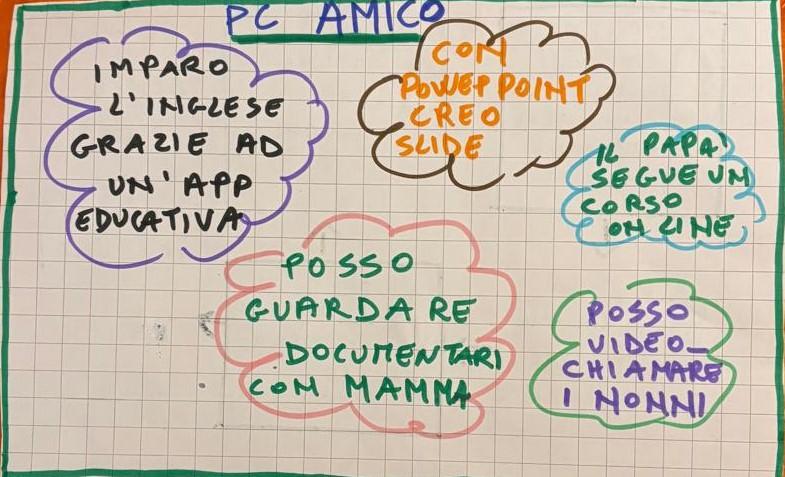 PC AMICO
IMPARO
L'INGLESE
GRAZIE AD
UN'APP
EDUCATIVA
CON
POWEPPOINT
CREO
SLIDE
IL PAPA'
SEGUE UN
CORSO
ON LINE
POSSO
GUARDARE
DOCUMENTARI
COM MAMMA
POSSO
VIDEO-
CHIAMARE
I NONNI